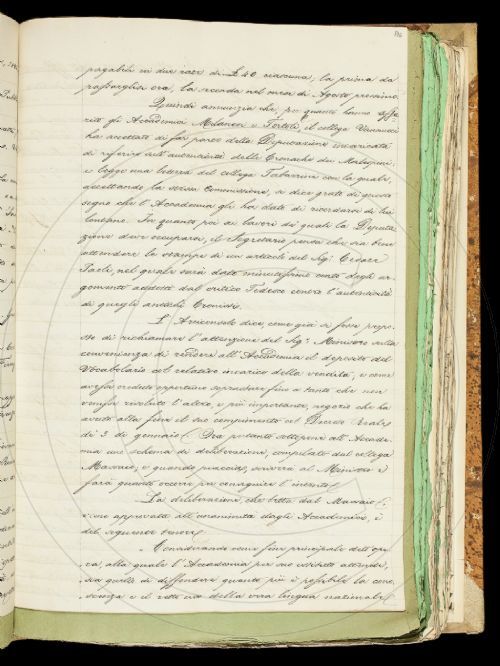 pagabili in due rate di L. 40 ciascuna, la prima da
rassegnarsi ora, la seconda nel mese di Agosto prossimo.
Quindi annunzia che, per quanto hanno riferito
gli Accademici Milanesi e Tortoli, il collega Vannucci
ha accettato di far parte della Deputazione incaricata
di riferire sull'autenticità delle Cronache dei Malespini;
e legge una lettera del collega Tabarrini con la quale,
accettando la stessa Commissione, si dice grato di questo
segno che l'Accademia gli ha dato di ricordarsi di lui
lontano. In quanto poi ai lavori di quali la Deputa-
zione deve occuparsi, il Segretario pensa che sia bene
attendere la stampa di un articolo del Sig.r Cesare
Paoli, nel quale sarà dato minutissimo conto degli ar-
gomenti addotti dal critico Tedesco contro l'autenticità
di quegli antichi Cronisti.
L'Arciconsolo dice, come già si fosse propo-
sto di richiamare l'attenzione del Sig.r Ministro sulla
convenienza di rendere all'Accademia il deposito del
Vocabolario col relativo incarico della vendita, e come
avesse creduto opportuno soprastare fino a tanto che non
venisse risoluto l'altro, e più importante, negozio che ha
avuto alla fine il suo compimento col Decreto Reale
di 3 di gennaio. Ora pertanto sottopone all'Accade-
mia uno schema di deliberazione, compilato dal collega
Massaio; e quando piaccia, scriverà al Ministro e
farà quanto occorre per conseguire l'intento.
La deliberazione, che letta dal Massaio
viene approvata all'unanimità dagli Accademici, è
del seguente tenore:
"Considerando come fine principale dell'ope-
ra, alla quale l'Accademia per suo istituto attende,
sia quello di diffondere quanto più è possibile la cono-
scenza e il retto uso della vera lingua nazionale;